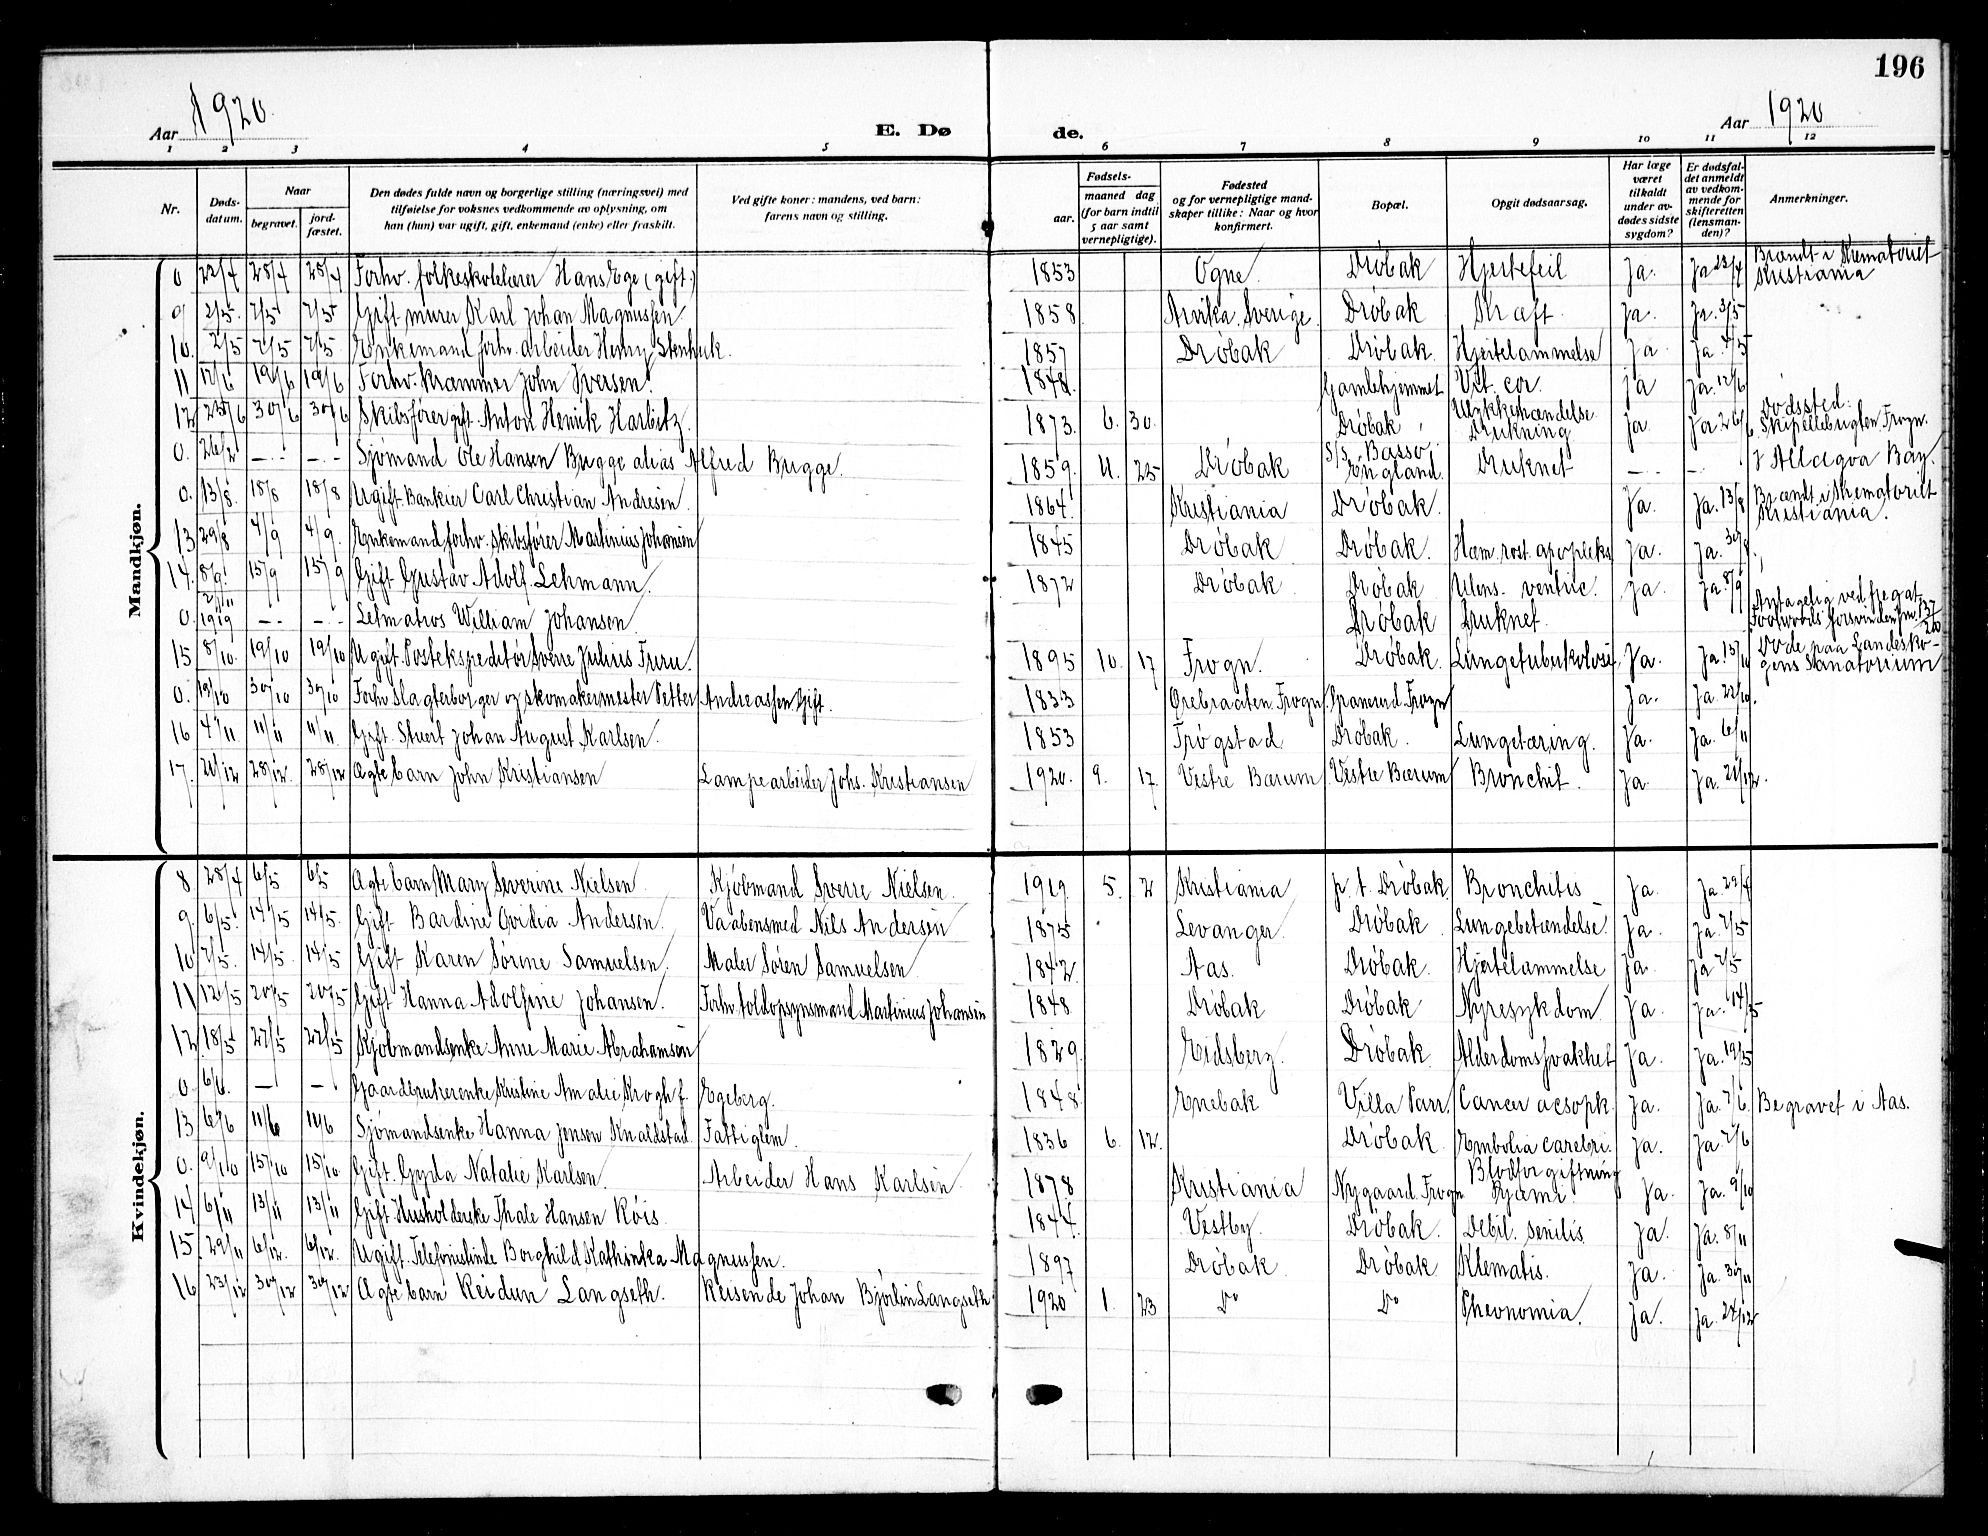 196
Aar 1920.
E. Dø
de.
Aar 1920
1 2 3 4 5 6 7 8 9 10 11 12
Nr. Døds-datum. Naar begravet. jord-fæstet. Den dødes fulde navn og borgerlige stilling (næringsvei) med tilføielse for voksnes vedkommende av oplysning, om han (hun) var ugift, gift, enkemand (enke) eller fraskilt. Ved gifte koner: mandens, ved barn: farens navn og stilling. Fødsels- aar. maaned dag (for barn indtil 5 aar samt vernepligtige). Fødested og for vernepligtige mandskaper tillike: Naar og hvor konfirmert. Bopæl. Opgit dødsaarsag. Har læge været tilkaldt under avdødes sidste sygdom? Er dødsfaldet anmeldt av vedkommende for skifteretten (lensmanden)? Anmerkninger.
Mandkjøn.
0 22/4 28/4 28/4 Forhv. folkeskolelærer Hans Ege (gift.) 1853 Ogne. Drøbak Hjertefeil Ja. Ja 23/4 Brændt i Krematoriet Kristiania
9 2/5. 7/5 7/5 Gift murer Karl Johan Magnussen 1858 Arvika. Sverige. Drøbak Kræft. Ja. Ja. 3/5
10. 2/5 7/5 7/5 Enkemand forhv. arbeider Henry Stenhuk. 1857 Drøbak Drøbak. Hjertelammelse Ja Ja. 4/5
11 12/6 19/6 19/6 Forhv. Kræmmer John Iversen. 1848. Gamlehjemmet Vit. cor. Ja Ja. 12/6
12 25/6 30/6 30/6 Skibsfører gift. Anton Henrik Harbitz. 1873. 6. 30. Drøbak Ulykkehændelse Drukning Ja Ja 26/6 Dødssted: Skipellebugten, Frogn.
0. 26/2 -.- -.- Sjømand Ole Hansen Brygge alias Alfred Brygge. 1859. 11. 25 Drøbak S/S. Basso, England. Druknet -.- -. Allagva Bay.
0. 13/8. 18/8 18/8 Ugift Bankier Carl Christian Andresen. 1864. Kristiania Drøbak. Ja. Ja. 13/8 Brændt i Krematoriet Kristiania.
13 29/8 4/9 4/9. Enkemand forhv. skibsfører Martinius Johansen 1845 Drøbak Drøbak. Hæm. rost. apopleks Ja. Ja. 30/8
14. 8/9. 15/9 15/9 Gift Gustav Adolf Lehmann. 1872 Drøbak Drøbak Ulcus. ventric. Ja. Ja. 8/9
0. 2/11 1919 -.- -.- Letmatros William Johansen. Drøbak Druknet. Antagelig ved fregat Footwoods forsvinden Jnr. 137/20
15 8/10. 19/10 19/10 Ugift. Postekspeditør Sverre Julius Furu. 1895 10. 17 Frogn. Drøbak. Lungetuberkulose. Ja. Ja. 13/10 Døde paa Landeskogens Sanatorium
0. 19/10 30/10 30/10 Forhv. Slagterborger og skomakermester Petter Andreassen Gift. 1833 Ørebraaten Frogn. Granerud Frogn Ja. Ja. 22/10.
16 4/11 11/11 11/11. Gift. Stuert Johan August Karlsen. 1853 Trøgstad Drøbak. Lungetæring. Ja. Ja. 6/11
17. 21/12 28/12. 28/12 Ægte barn John Kristiansen Lampearbeider Johs. Kristiansen 1920. 9. 17 Vestre Bærum Vestre Bærum Bronchit. Ja. Ja. 21/12.
Kvindekjøn.
8 28/4 6/5 6/5 Ægte barn Mary Severine Nielsen. Kjøbmand Sverre Nielsen. 1919. 5. 2 Kristiania p.t. Drøbak Bronchitis Ja. Ja. 29/4
9. 6/5. 14/5 14/5. Gift Bardine Ovidia Andersen. Vaabensmed Nils Andersen 1875 Levanger. Drøbak Lungebetændelse. Ja. Ja. 7/5
10 7/5. 14/5. 14/5 Gift Karen Sørine Samuelsen. Maler Søren Samuelsen. 1842 Aas. Drøbak. Hjertelammelse Ja. Ja 7/5
11 12/5 20/5 20/5 Gift Hanna Adolfine Johansen. Forhv. toldopsynsmand Martinius Johansen 1848 Drøbak Drøbak Nyresykdom. Ja. Ja. 14/5
12. 18/5 22/5 22/5 Kjøbmandsenke Anne Marie Abrahamsen 1829. Eidsberg. Drøbak. Alderdomssvakhet Ja. Ja. 19/5
0. 6/6. - - Gaardbrukerenke Kristine Amalie Krogh f. Egeberg. 1848 Enebak Villa Parr. Cancer aesoph. Ja. Ja. 7/6. Begravet i Aas.
13 6/6 11/6 11/6 Sjømandsenke Hanna Jensen Knaldstad. Fattiglem. 1836 6. 12. Drøbak. Embolia carebri. Ja. Ja 7/6
0. 9/10 15/10 15/10. Gift. Gyda Natalie Karlsen. Arbeider Hans Karlsen 1878 Kristiania Nygaard. Frogn Blodforgiftning Pyæmi. Ja. Ja. 9/10
14 6/11 13/11 13/11 Gift. Husholderske Thale Hansen Røis. 1844. Vestby. Drøbak. Debil. senilis. Ja. Ja. 8/11
15. 29/11 6/12. 6/12. Ugift. Telefonistinde Borghild Kathinka Magnussen. 1897 Drøbak. Drøbak. Klematis. Ja. Ja. 30/11
16 23/12 30/12 30/12 Ægte barn Reidun Langseth. Reisende Johan Bjørlin Langseth 1920 1. 23 Do Do Phevnomia. Ja. Ja. 24/12